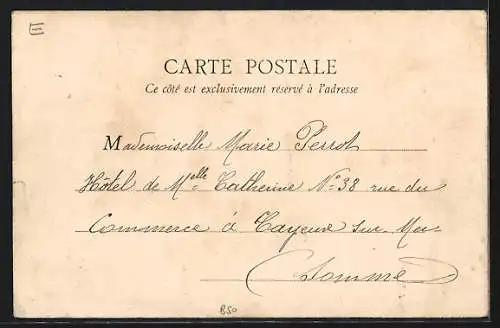 CARTE POSTALE
Ce côté est exclusivement réservé à l'adresse
Mademoiselle Marie Perrot
Hôtel de Melle Catherine N° 38 rue du
Commerce à Cayeux sur Mer
(Somme)
B50